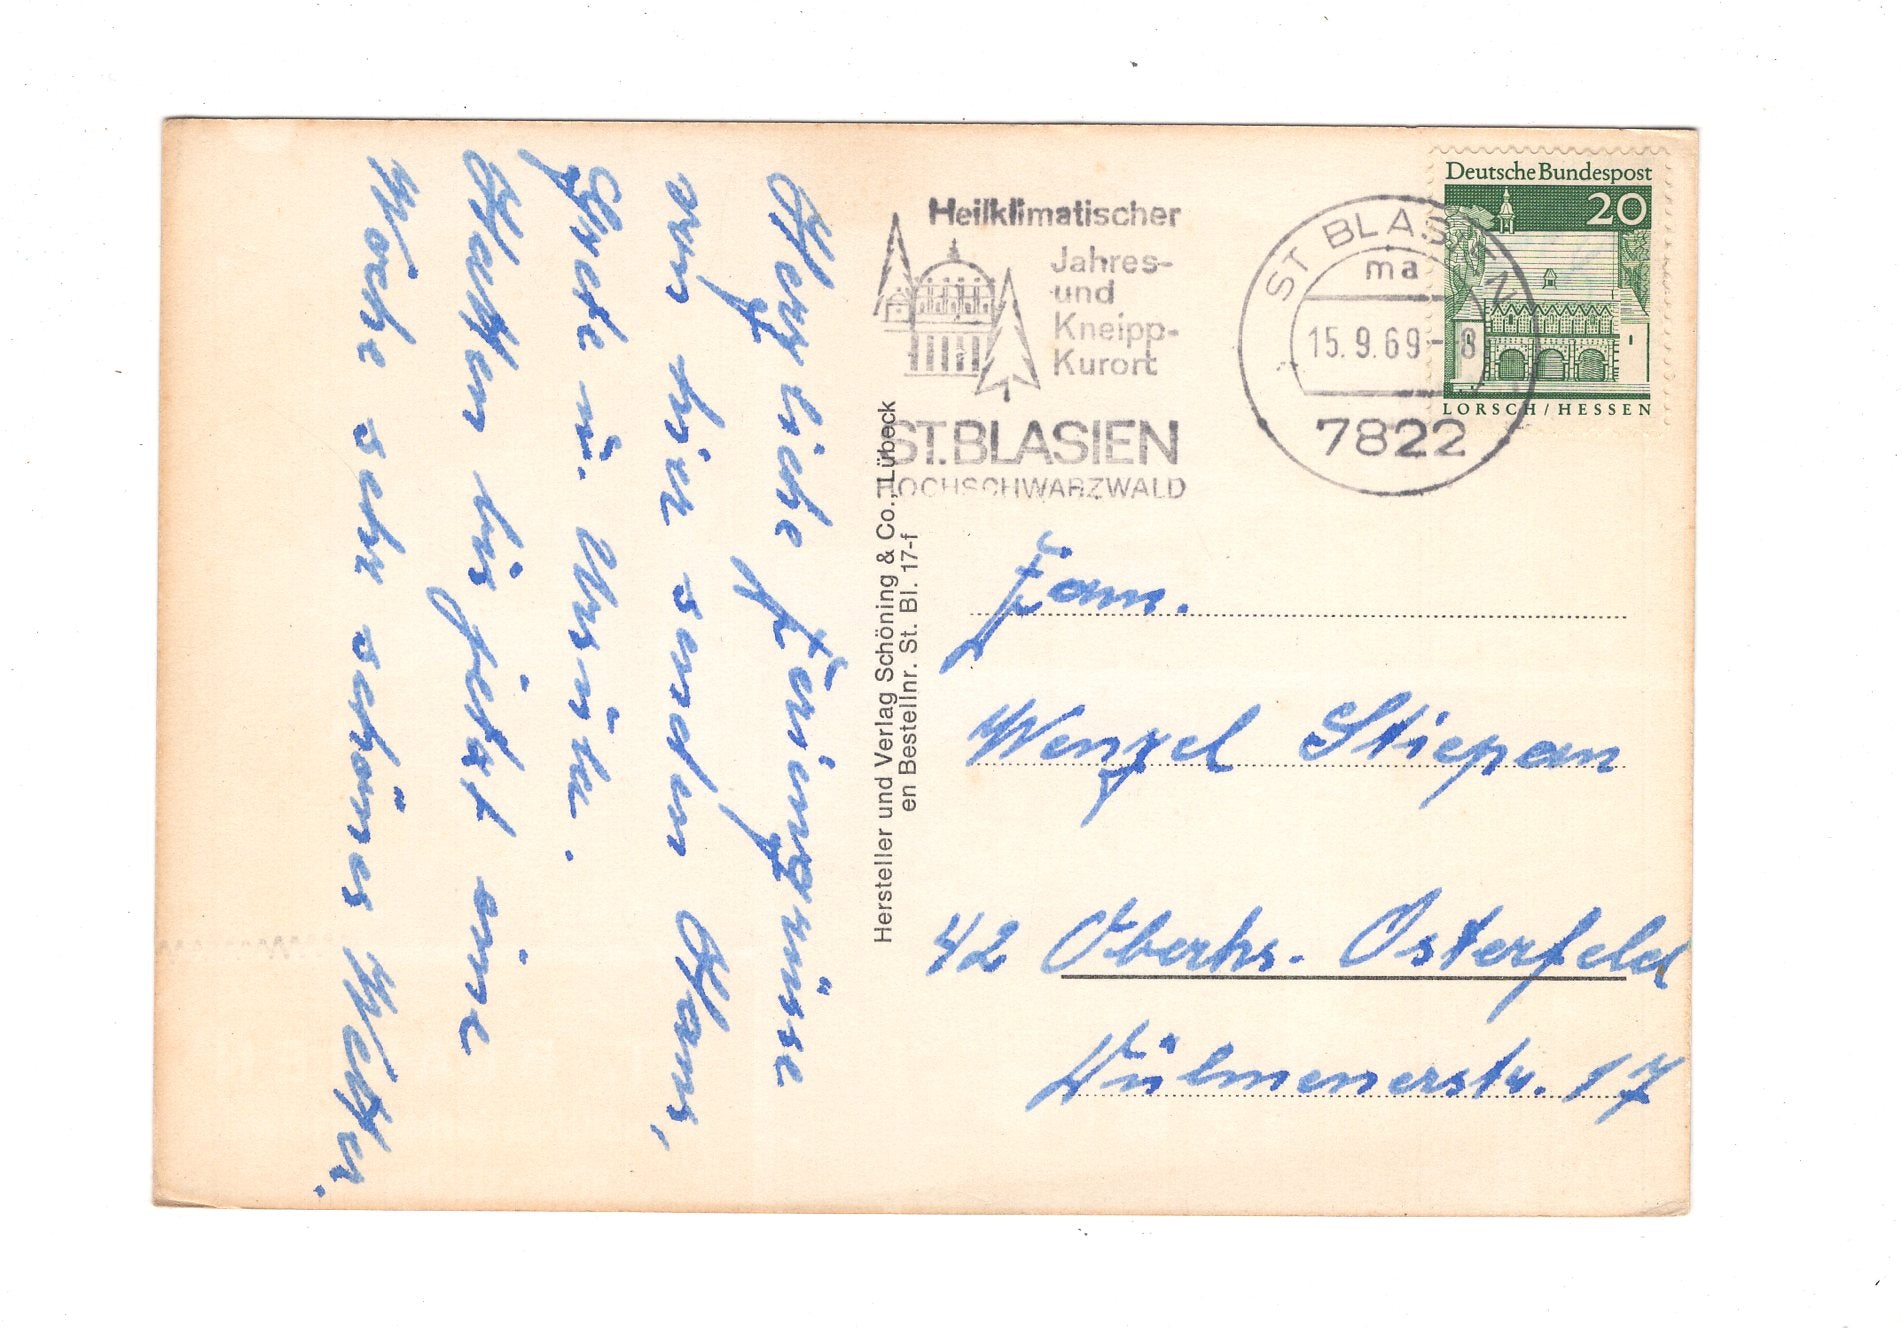 Herzliche Feriengrüsse
von hier senden Hans,
Grete u. Ursula.
Hatten bis jetzt eine
Woche sehr schönes Wetter.
Hersteller und Verlag Schöning & Co., Lübeck
en Bestellnr. St. Bl. 17-f
Heilklimatischer
Jahres-
und
Kneipp-
Kurort
ST. BLASIEN
HOCHSCHWARZWALD
ST BLASIEN
ma
15.9.69-8
7822
Deutsche Bundespost
20
LORSCH/HESSEN
Fam.
Wenzel Stiepan
42 Oberhs. Osterfeld
Dülmenerstr. 17